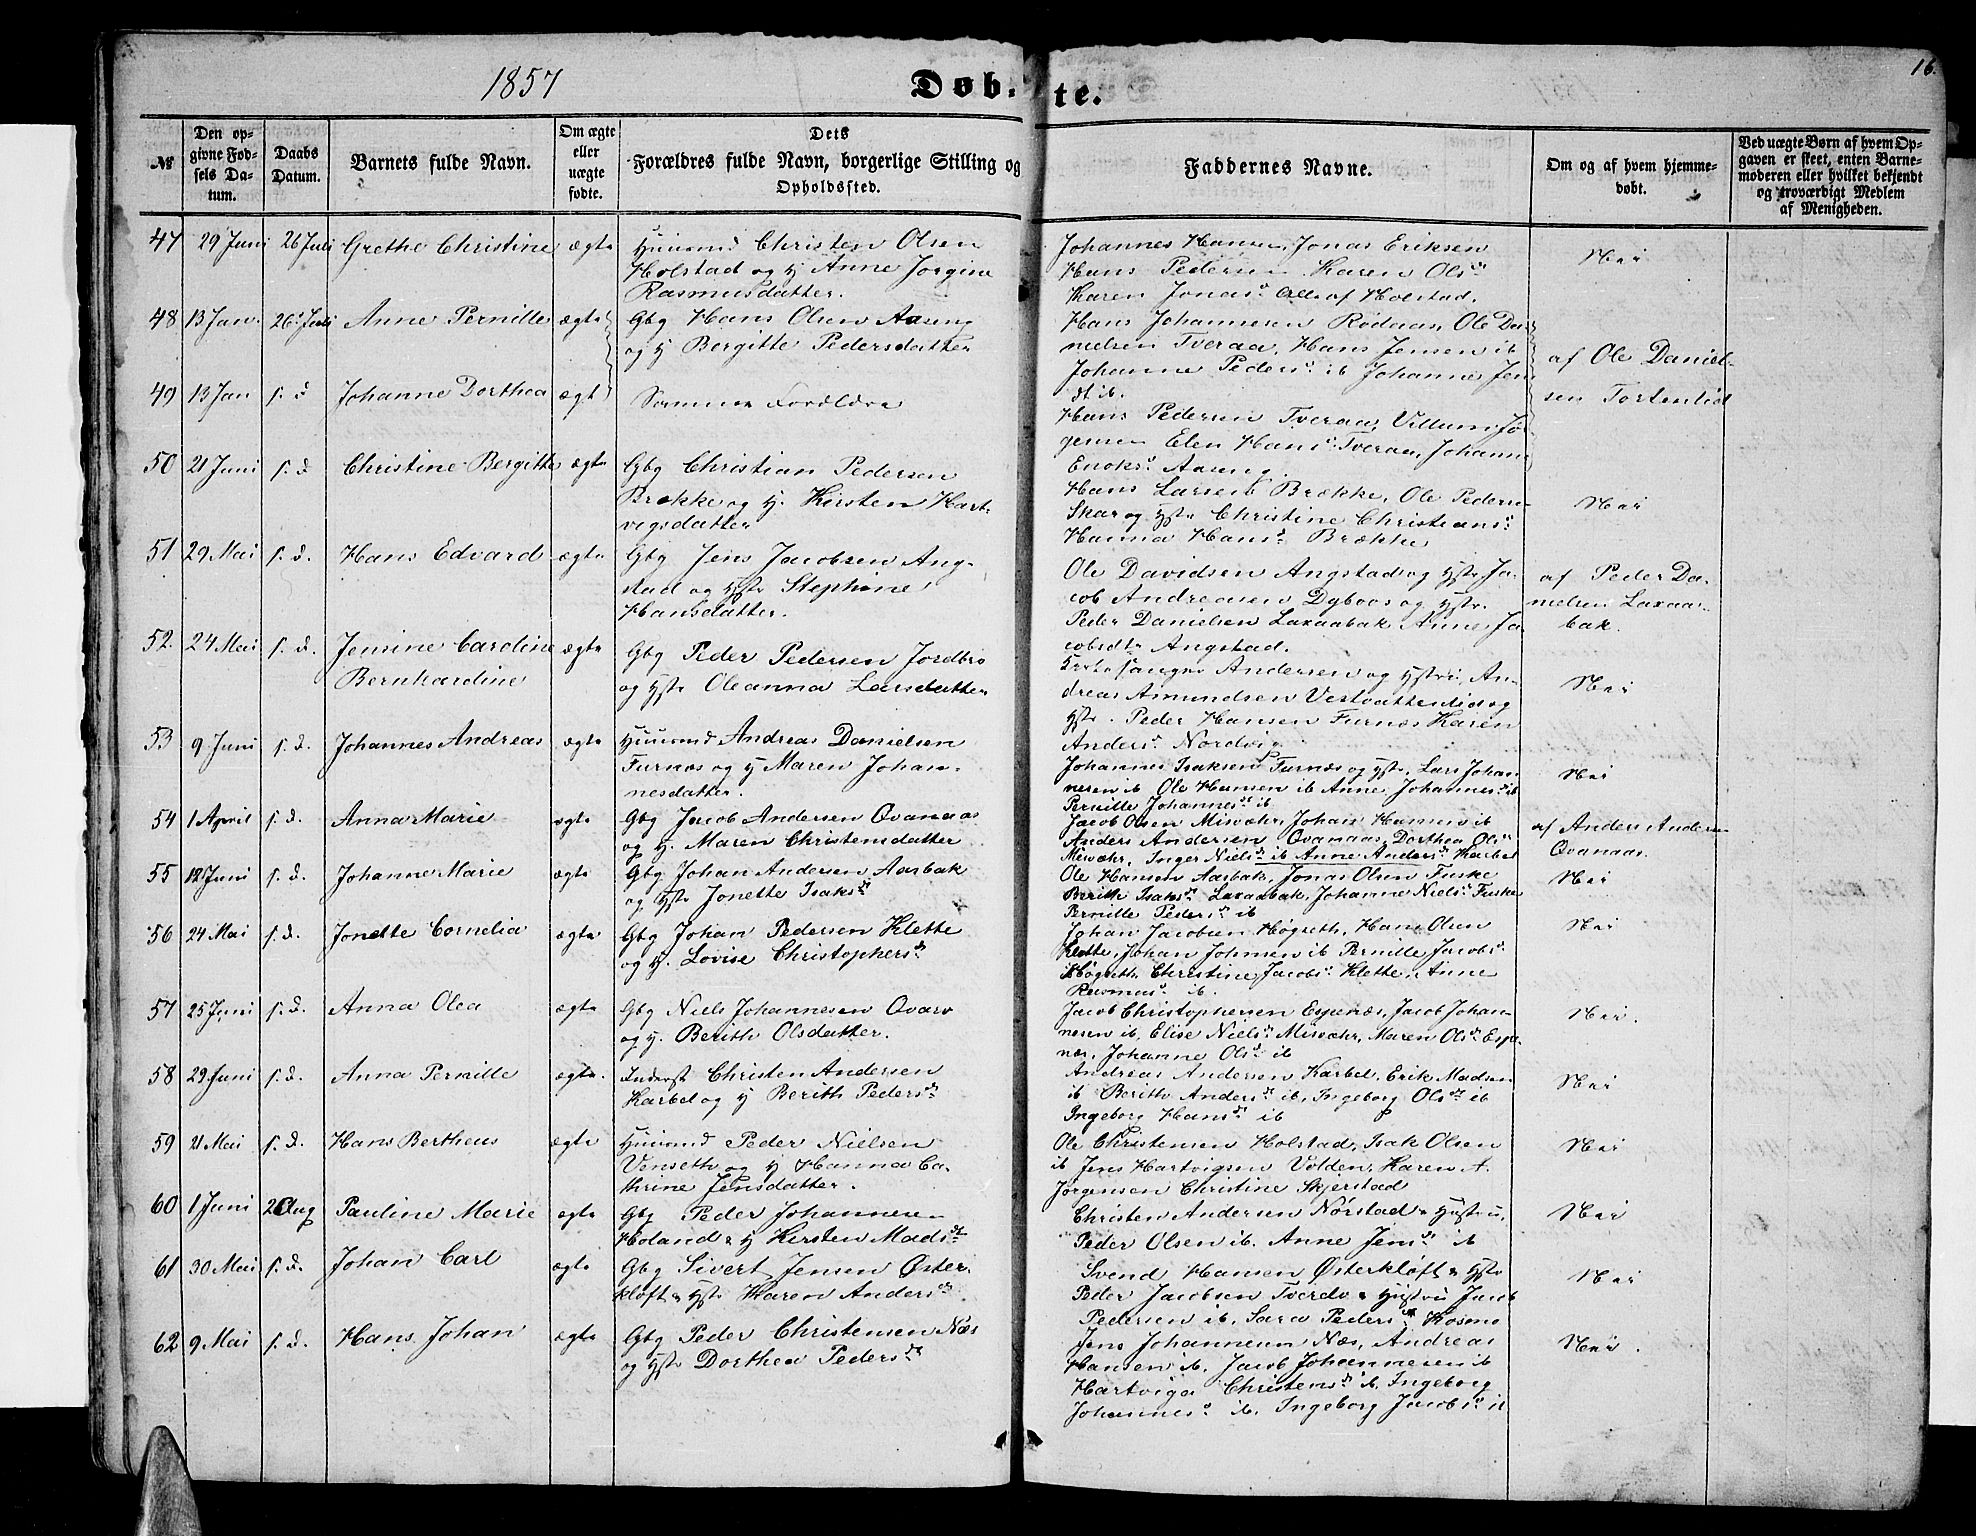 16.
1857
Døbte.
№
Den op-
givne Fød-
sels Da-
tum.
Daabs
Datum.
Barnets fulde Navn.
Om ægte
eller
uægte
fødte.
Dets
Forældres fulde Navn, borgerlige Stilling og
Opholdssted.
Faddernes Navne.
Om og af hvem hjemme-
døbt.
Ved uægte Børn af hvem Op-
gaven er skeet, enten Barne-
moderen eller hvilket bekjendt
og troværdigt Medlem
af Menigheden.
47 29 Juni 26 Juli Grethe Christine ægte
Huusmd Christen Olsen
Holstad og H Anne Jørgine
Rasmusdatter.
Johannes Hansen, Jonas Eriksen
Hans Pedersen Karen Olsd
Karen Jonasd Alle af Holstad.
Nei
48 13 Jan. 26 Juli Anne Pernille ægte
Gbg Hans Olsen Aaseng
og H Bergitte Pedersdatter
Hans Johannesen Rødaas, Ole Da-
nielsen Tveraa, Hans Jensen ib
Johanne Pedersd ib Johanne Jens
dt ib.
af Ole Daniel-
sen Tortenlid
49 13 Jan s. d Johanne Dorthea ægt
Samme Forældre
Hans Pedersen Tveraa, Villum Jør-
gensen Elen Hansd Tveraa, Johanne
Enoksd Aaseng.
50 21 Juni s. d Christine Bergitte ægte
Gbg Christian Pedersen
Brække og H. Kirsten Hart-
vigsdatter
Hans Larsen Brække, Ole Pedersen
Skar og Hstr Christine Christiansd
Hanna Hansd Brække
Nei
51 29 Mai s. d. Hans Edvard ægte
Gbg Jens Jacobsen Ang-
stad og Hstr Stephine
Hansdatter.
Ole Davidsen Angstad og Hstr Ja-
cob Andreasen Dybvos og Hstr.
Peder Danielsen Laxaabak Anne Ja-
cobsdtr Angstad.
af Peder Da-
nielsen Laxaa-
bak.
52. 24 Mai s. d. Jensine Cardine
Bernhardine
ægte
Gbg Peder Pedersen Jordbro
og Hstr Oleanna Larsdatter
Andersen og Hstru, An-
dreas Amundsen Vestvattenlid og
Hstr. Peder Hansen Furnæs Karen
Andersd Nordvig
Nei
53 9 Juni s. d. Johannes Andreas ægte
Huusmd Andreas Danielsen
Furnæs og H Maren Johan-
nesdatter.
Johannes Isaksen Furnæs og Hstr, Lars Johan-
nesen ib Ole Hansen ib Anne Johannesd ib
Pernille Johannesd ib
Nei
54 1 April s. d. Anna Marie ægte
Gbg Jacob Andersen Qvanaas
og H. Maren Christensdatter
Jacob Olsen Misvæhr, Johan Hansen ib
Anders Andersen Qvanaas, Dorthea Olsd
Misvæhr, Inger Nielsd ib Anne Andersd Karbel
af Anders Andersen
Qvanaas.
55 12 Juni s. d. Johanne Marie ægte
Gbg Johan Andersen Aarbak
og Hstr Jonette Isaksdr
Ole Hansen Aarbak, Jonas Olsen Fuske
Berith Isaksd Laxaabak, Johanne Nielsd Fuske
Pernille Pedersd ib
Nei
56 24 Mai s. d. Jonette Cornelia ægte
Gbg Johan Pedersen Klette
og H. Lovise Christophersd
Johan Jacobsen Høgseth, Hans Olsen
Klette, Johan Johnsen ib Pernille Jacobsd
Høgseth, Christine Jacobsd Klette, Anne
Rasmusd ib.
Nei
57 25 Juni s. d. Anna Olea ægte
Gbg Niels Johannesen Qvarv
og H. Berith Olsdatter.
Jacob Christophersen Espenæs, Jacob Johan-
nesen ib, Elise Nielsd Misvæhr, Maren Olsd Espe-
næs, Johanne Olsd ib
Nei.
58 29 Juni s. d. Anna Pernille ægte.
Inderst Christen Andersen
Karbel og H Berith Pedersd
Andreas Andersen Karbel, Erik Madsen
ib Berith Andersd ib, Ingeborg Olsd ib
Ingeborg Hansd ib
Nei
59 21 Mai s. d. Hans Bertheus ægte
Huusmd Peder Nielsen
Venseth og H Hanna Ca-
thrine Jensdatter.
Ole Christensen Holstad, Isak Olsen
ib Jens Hartvigsen Volden, Karen A.
Jørgensen Christine Skjerstad
Nei
60 1 Juni 2 Aug Pauline Marie ægte
Gbg Peder Johannesen
Holand & H Kirsten Madsdtr
Christen Andersen Nørstad & Hustru,
Peder Olsen ib. Anne Jensd ib
Nei
61 30 Mai s. d. Johan Carl ægte
Gbg Sivert Jensen Øster-
kløft & Hstr Karen Andersd.
Svend Hansen Østerkløft & Hstr
Peder Jacobsen Tverdv & Hustru Jacob
Pedersen ib, Sara Pedersd Kosmo
Nei
62 9 Mai s. d. Hans Johan ægte
Gbg Peder Christensen Næs
og Hstr Dorthea Pedersdr
Jens Johannesen Næs, Andreas
Hansen ib, Jacob Johannesen ib
Hartviga Christensd ib, Ingeborg
Johannesd ib, Ingeborg Jacobsd ib
Nei.